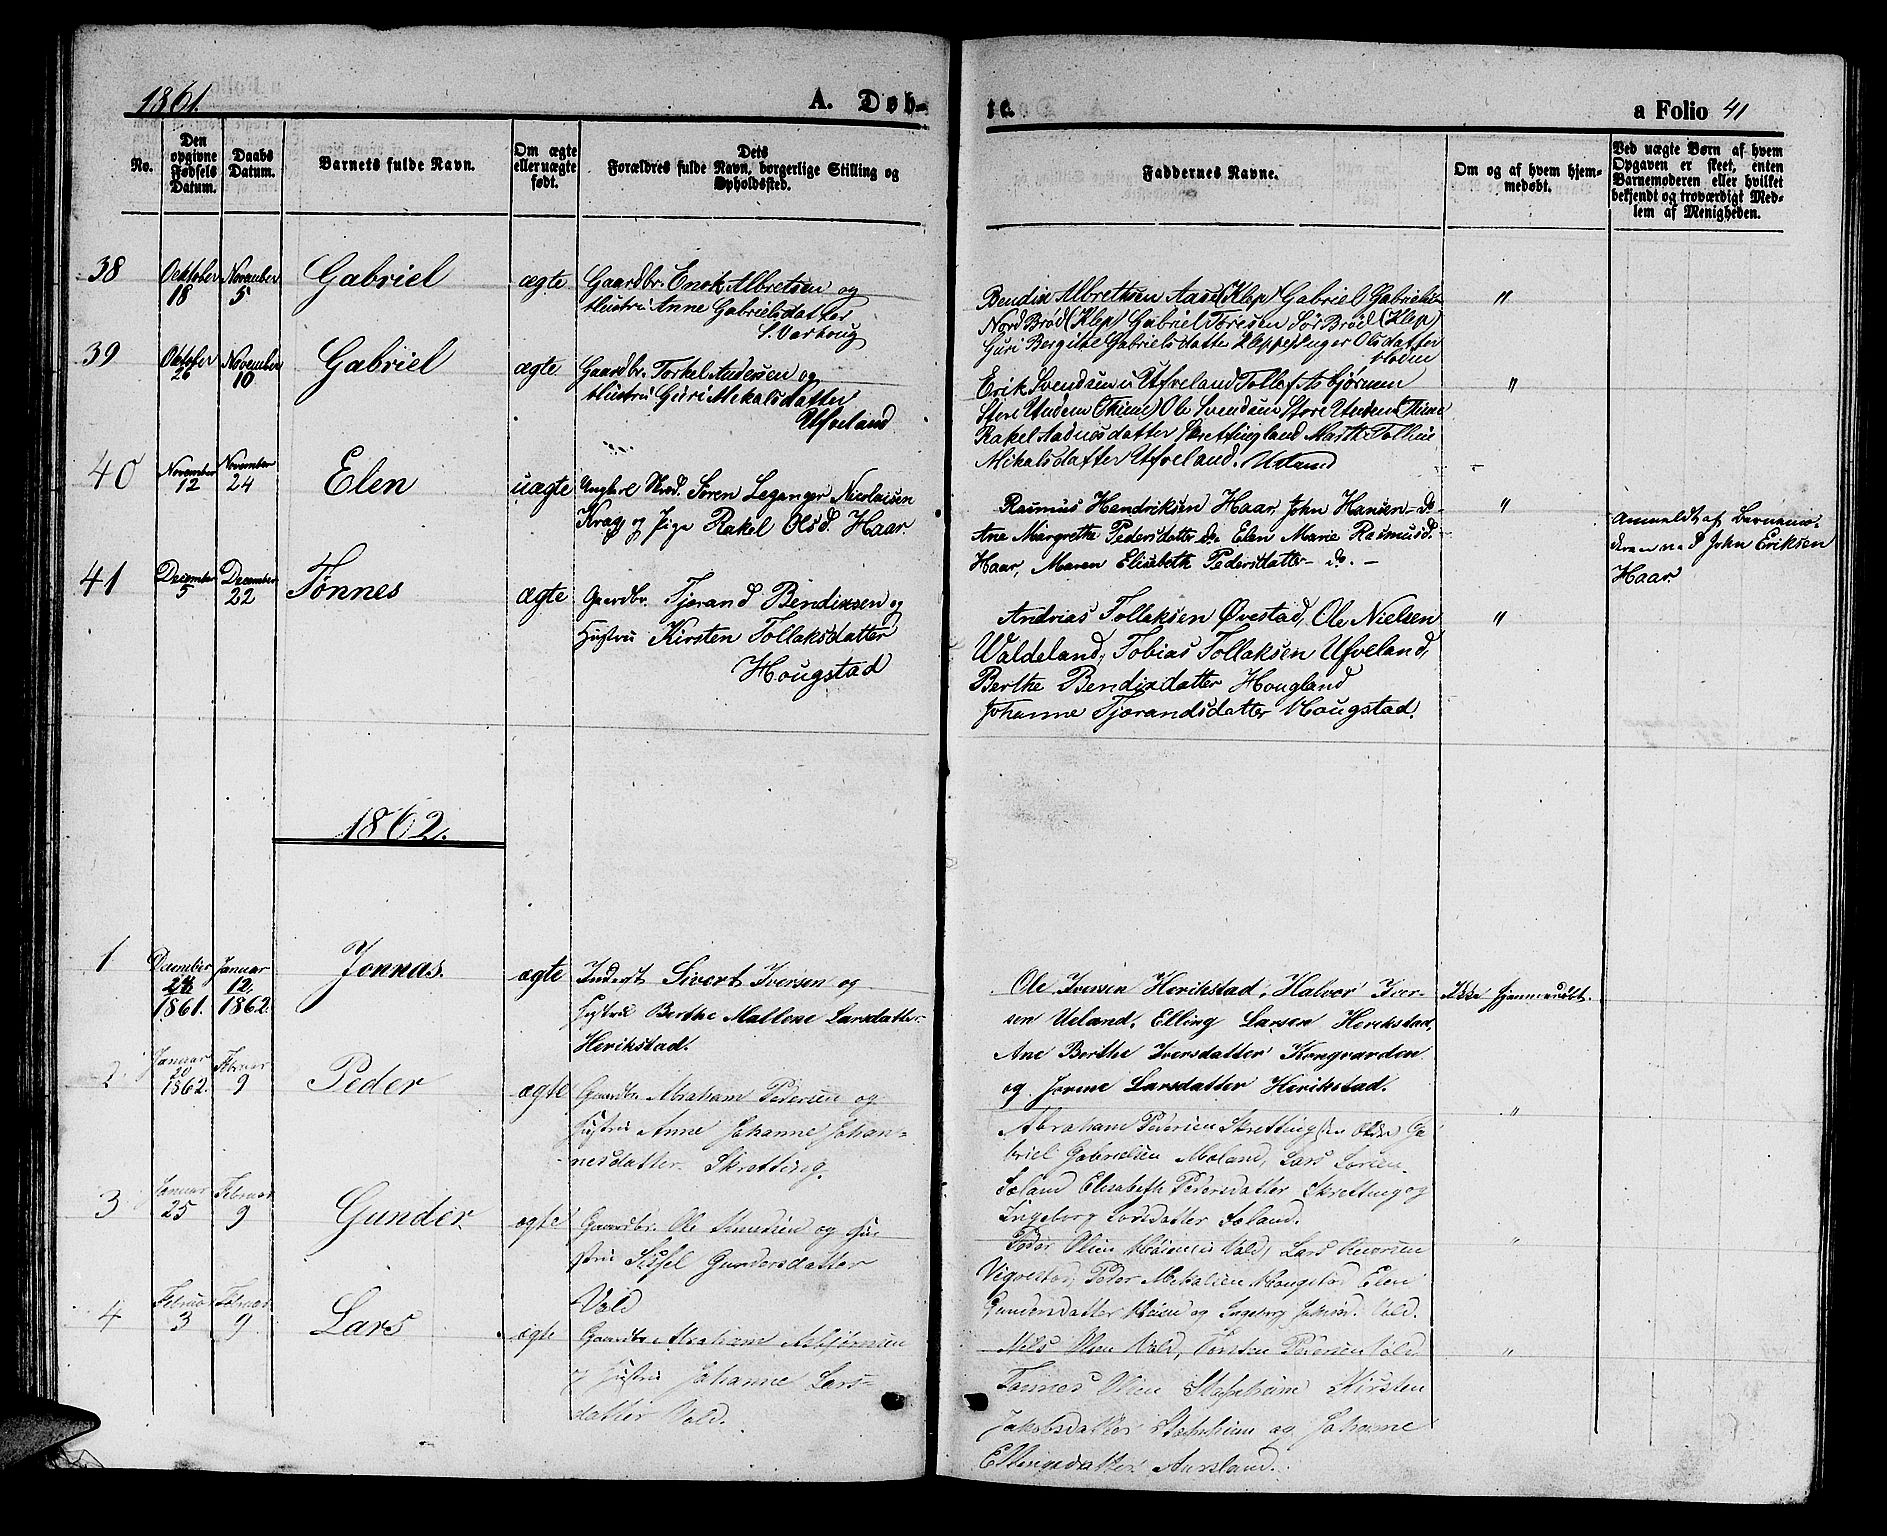 1861.
A. Døb-
te.
a Folio 41
No.
Den opgivne Fødsels Datum.
Daabs Datum.
Barnets fulde Navn.
Om ægte eller uægte født.
Dets Forældres fulde Navn, borgerlige Stilling og Opholdssted.
Faddernes Navne.
Om og af hvem hjem-
medøbt.
Ved uægte Børn af hvem
Opgaven er skeet, enten
Barnemoderen eller hvilket
bekjendt og troværdigt Med-
lem af Menigheden.
38
Oektober 18
November 5
Gabriel
ægte
Gaardbr. Enok Albretsen og
Hustru Anne Gabrielsdatter
S. Varhoug
Bendix Albrethsen Aase (Klep) Gabriel Gabrielsen
Nord Brød (Klep) Gabriel Toresen Sør Brød (Klep)
Guri Bergithe Gabrielsdatter Kleppe Inger Olsdatter
"
39
Oktober 26
November 10
Gabriel
ægte
Gaardbr. Torkel Andersen og
Hustru Guri Mikalsdatter
Ufveland
Erik Svendsen Ufveland Tollef Asbjørnsen
Store Undem (Thime) Ole Svendsen Store Undem (Thime
Rakel Aadnosdatter Skrettingland Marthe Tolline
Mikalsdatter Ufveland.
"
40
November 12
November 24
Elen
uægte
Ungkarl Stud. Søren Leganger Nicolaisen
Krag, og Pige Rakel Olsd. Haar.
Rasmus Hendriksen Haar, John Hansen - do -
Ane Margrethe Pedersdatter do. Elen Marie Rasmusd.
Haar, Maren Elisabeth Pedersdatter - do. -
"
Anmeldt af Barnemo-
deren ved John Eriksen
Haar
41
December 5
December 22
Tønnes
ægte
Gaardbr. Tjørand Bendixsen og
Hustru Kirsten Tollaksdatter
Hougstad
Andrias Tollaksen Øvestad, Ole Nielsen
Waldeland, Tobias Tollaksen Ufveland,
Berthe Bendixdatter Hougland
Johanne Tjørandsdatter Hougstad.
"
1862.
1
December 24 1861.
Januar 12. 1862.
Jonnas.
ægte
Inderst Sivert Iversen og
Hustru Berthe Mallene Larsdatter
Herikstad.
Ole Iversen Herikstad, Halvor Iver-
sen Ueland, Elling Larsen Herikstad,
Ane Berthe Iversdatter Kongvarden
og Jorine Larsdatter Herikstad.
Ikke hjemmedøbt.
2
Januar 20 1862.
Februar 9
Peder
ægte
Gaardbr. Abraham Pedersen og
Hustru Anne Johanne Johan-
nesdatter Skretting.
Abraham Pedersen Skretting, Ga-
briel Gabrielsen Moland, Lars
Søland Elisabeth Pedersdatter Skretting og
Ingeborg Larsdatter Søland.
"
3
Januar 25
Februar 9
Gunder
ægte
Gaardbr. Ole Simensen og Hu-
stru Sissel Gundersdatter
Vold
Peder Olsen Høien Vold, Lars
Vigrestad, Peder Mikalsen Hougstad Elen
Gundersdatter Høien og Ingeborg Vold.
"
4
Februar 3
Februar 9
Lars
ægte
Gaardbr. Abraham Asbjørnsen
og Hustru Johanne Lars-
datter Vold.
Nils Olsen Vold, Torsten Pedersen Vold
Tønnes Olsen Stokheim Kirsten
Jakobsdatter Stokheim og Johanne
Ellingsdatter Aursland.
"